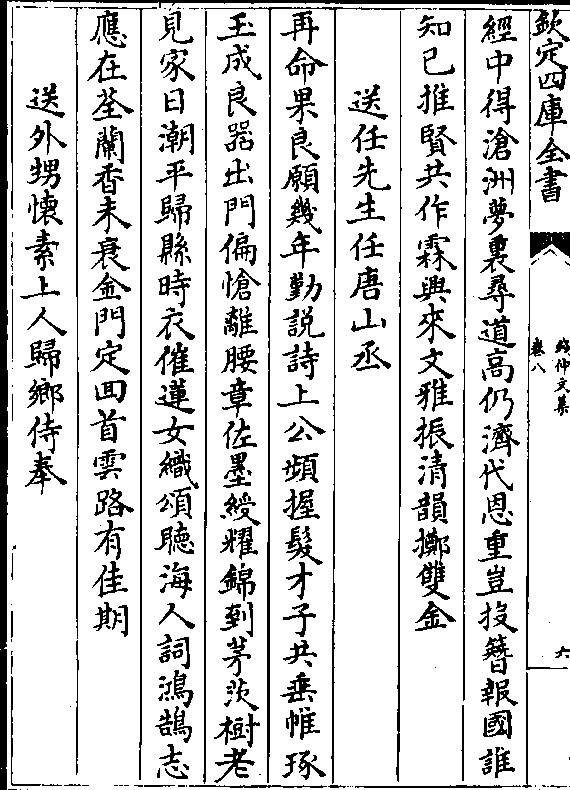 欽定四庫全書
錢仲文集
卷八
六
經中得滄洲夢裏尋道高仍濟代恩重豈投簪報國誰
知己推賢共作霖興來文雅振清韻擲雙金
送任先生任唐山丞
再命果良願幾年勤說詩上公頻握髮才子共垂帷琢
玉成良器出門偏愴離腰章佐墨綬耀錦到茅茨樹老
見家日潮平歸縣時衣催蓮女織頌聽海人詞鴻鵠志
應在荃蘭香未衰金門定回首雲路有佳期
送外甥懷素上人歸鄉侍奉